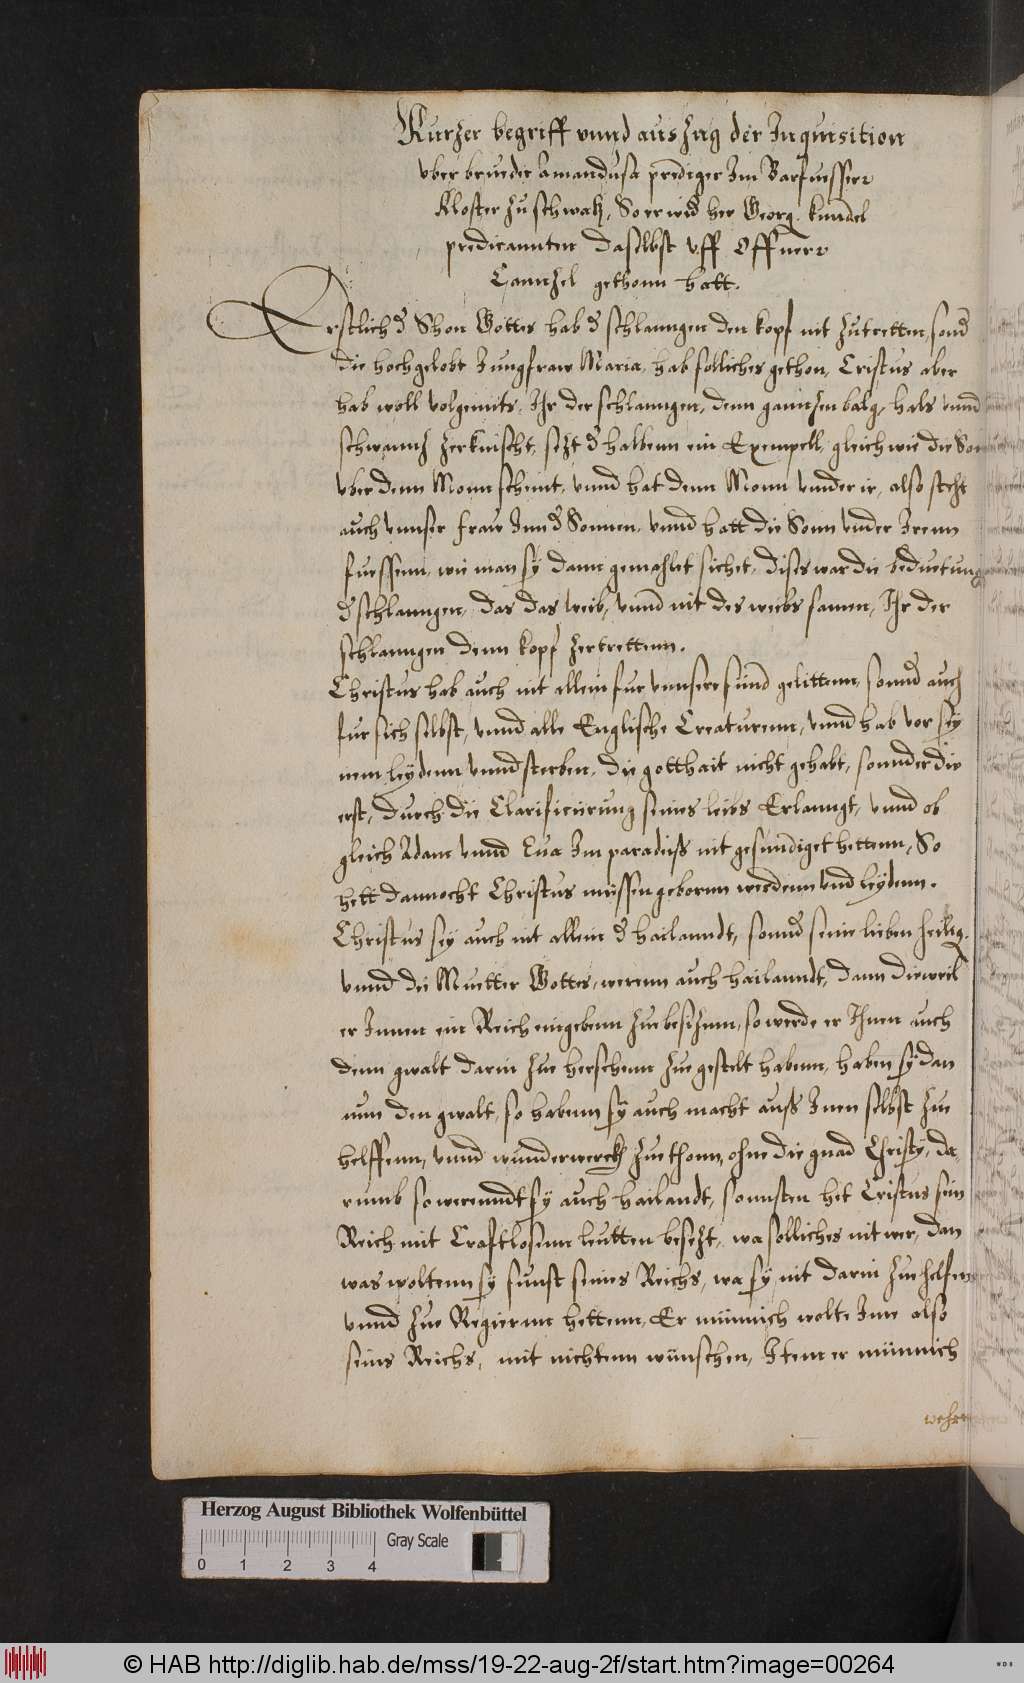 Kurzer begriff vnnd auszug der Inquisition
vber brueder Amandusa prediger Im Barfuesser
Kloster zu schwatz, So er wid her Georg kundel
predicannten daselbst vff Offner
Canntzel gethonn hatt.
Erstlich d Shon Gottes hab d schlanngen den kopf nit zutretten, sond
die hochgelobt Jungfraw Maria, hab solliches gethon, Cristus aber
hab woll volgents, Ihr der schlanngen, denn gantzen balg, hals vnnd
schwantz zerknischt, sezt dhalbenn ein Exempell, gleich wie die Son
vber denn Monn scheint, vnnd hat denn Monn vnder ir, also steht
auch vnnser fraw Inn d Sonnen, vnnd hatt die Sonn vnder Irenn
fuessenn, wie man sy dann gemahlet sichet, dises war die bedeutung
d schlanngen, das das weib, vnnd nit des weibs samen, Ihr der
schlanngen denn kopf zertrettenn.
Christus hab auch nit allein fur vnnsere sünd gelittenn, sonnd auch
fur sich selbst, vnnd alle Englische Creaturenn, vnnd hab vor sey
nem leydenn vnnd sterben, die gotthait nicht gehabt, sonnder die
erst, durch die Clarificierung seines leibs Erlanngt, vnnd ob
gleich Adam vnnd Eua Im paradiss nit gesundiget hettenn, So
hett dannocht Christus müssen gebornn werdenn vnd leydenn.
Christus sey auch nit allein d hailanndt, sonnd seine lieben heilig
vnnd die Muetter Gottes, werenn auch hailanndt, dann dieweil
er Innen ein Reich eingebenn zue besizenn, so werde er Ihnen auch
denn gwalt darin zue herschenn zue gestelt habenn, haben sy dan
nun den gwalt, so habenn sy auch macht auss Inen selbst zue
helffenn, vnnd wunderwerckh zue thonn, ohne die gnad Christy, da-
rumb so werenndt sy auch hailandt, sonnsten het Cristus sein
Reich mit Craftlosenn leutten besezt, wa solliches nit wer, dan
was woltenn sy sunst seines Reichs, wa sy nit darin zue helfen
vnnd zue Regiernn hettenn, Er münnich wolte Ime also
seins Reichs, mit nichtenn wünschen, Item er münnich
Herzog August Bibliothek Wolfenbüttel
Gray Scale
0 1 2 3 4
© HAB http://diglib.hab.de/mss/19-22-aug-2f/start.htm?image=00264